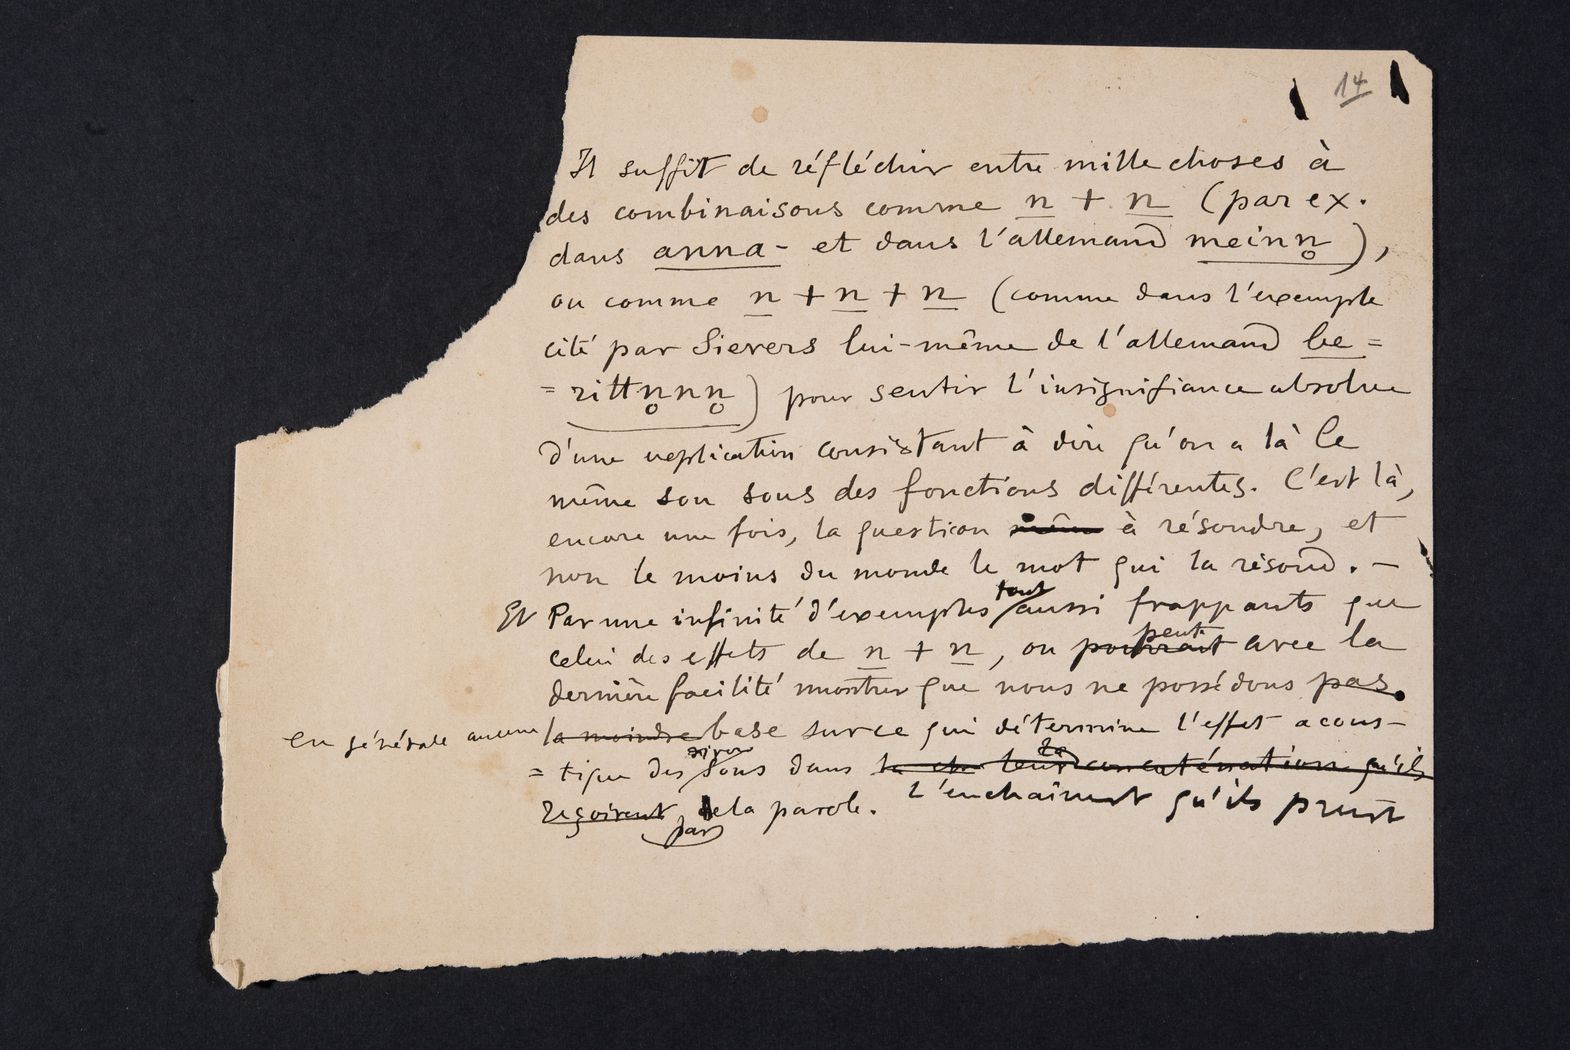 14
Il suffit de réfléchir entre mille choses à
des combinaisons comme n + n (par ex.
dans anna- et dans l'allemand meinn̥),
ou comme n + n + n (comme dans l'exemple
cité par Sievers lui-même de l'allemand be=
=rittn̥nn̥) pour sentir l'insignifiance absolue
d'une explication consistant à dire qu'on a là le
même son sous des fonctions différentes. C'est là,
encore une fois, la question même à résoudre, et
non le moins du monde le mot qui la résoud. —
Et Par une infinité d'exemples tout aussi frappants que
celui des effets de n + n, on pourrait peut avec la
dernière facilité montrer que nous ne possédons pas
en générale aucune la moindre base sur ce qui détermine l'effet acous-
=tique des divers sons dans la leur concaténation qu'ils
l'enchaînent qu'ils
reçoivent par la parole.